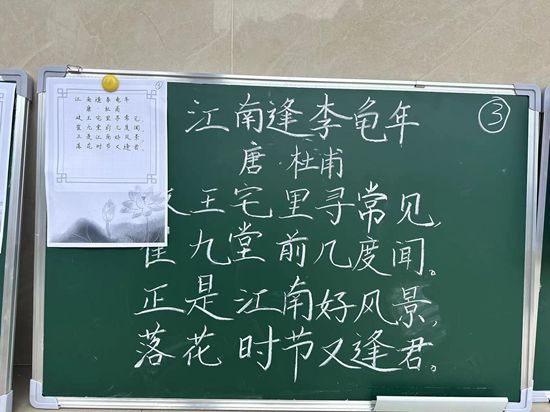 江南逢李龟年
唐 杜甫
岐王宅里寻常见,
崔九堂前几度闻。
正是江南好风景,
落花时节又逢君。
③
江南逢李龟年
唐·杜甫
王宅里寻常见,
崔九堂前几度闻。
正是江南好风景,
落花时节又逢君。